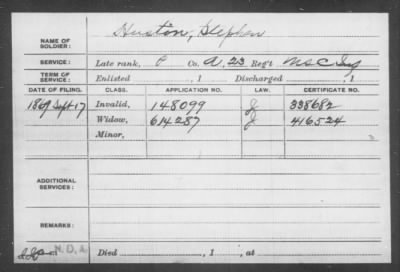 NAME OF SOLDIER: Huston, Stephen
SERVICE: Late rank, P Co. A, 23 Reg't U.S.C. Inf
TERM OF SERVICE: Enlisted , 1 Discharged , 1
DATE OF FILING. CLASS. APPLICATION NO. LAW. CERTIFICATE NO.
1869 Sept 17 Invalid, 148099 J 338682
Widow, 614287 J 416524
Minor,
ADDITIONAL SERVICES:
REMARKS:
N.D.A. Died , 1 , at